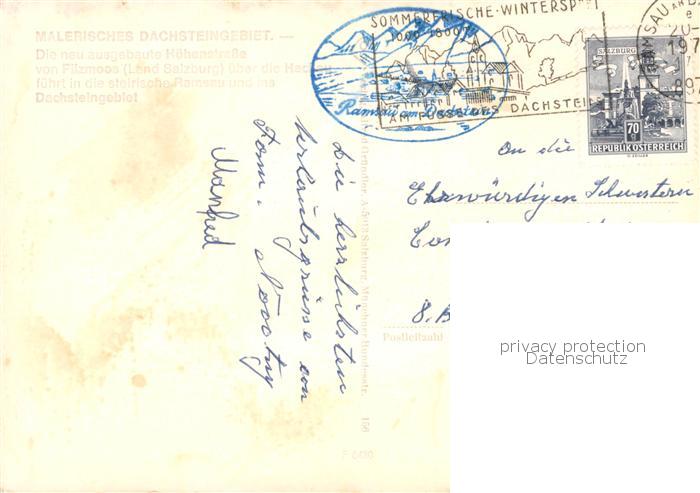 MALERISCHES DACHSTEINGEBIET. —
Die neu ausgebaute Höhenstraße
von Filzmoos (Land Salzburg) über die
führt in die steirische Ramsau und ins
Dachsteingebiet
SOMMERFRISCHE-WINTERSP
1000-1800
AM FUSSE DES DACHSTEIN
Ramsau am Dachstein
RAMSAU AM
e
20-
197
SALZBURG
70 g
REPUBLIK ÖSTERREICH
An die
Ehrwürdigen Schwestern
8. B
Postleitzahl
Die herzlichsten
Urlaubsgrüsse von
Fam.
Manfred
A-5012 Salzburg, Münchner Bundesstr. 156
F 6430
privacy protection
Datenschutz